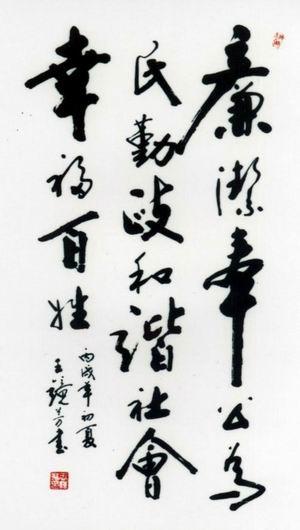 廉潔奉公为
民勤政和谐社會
幸福百姓
丙戌年初夏
王镜芳書